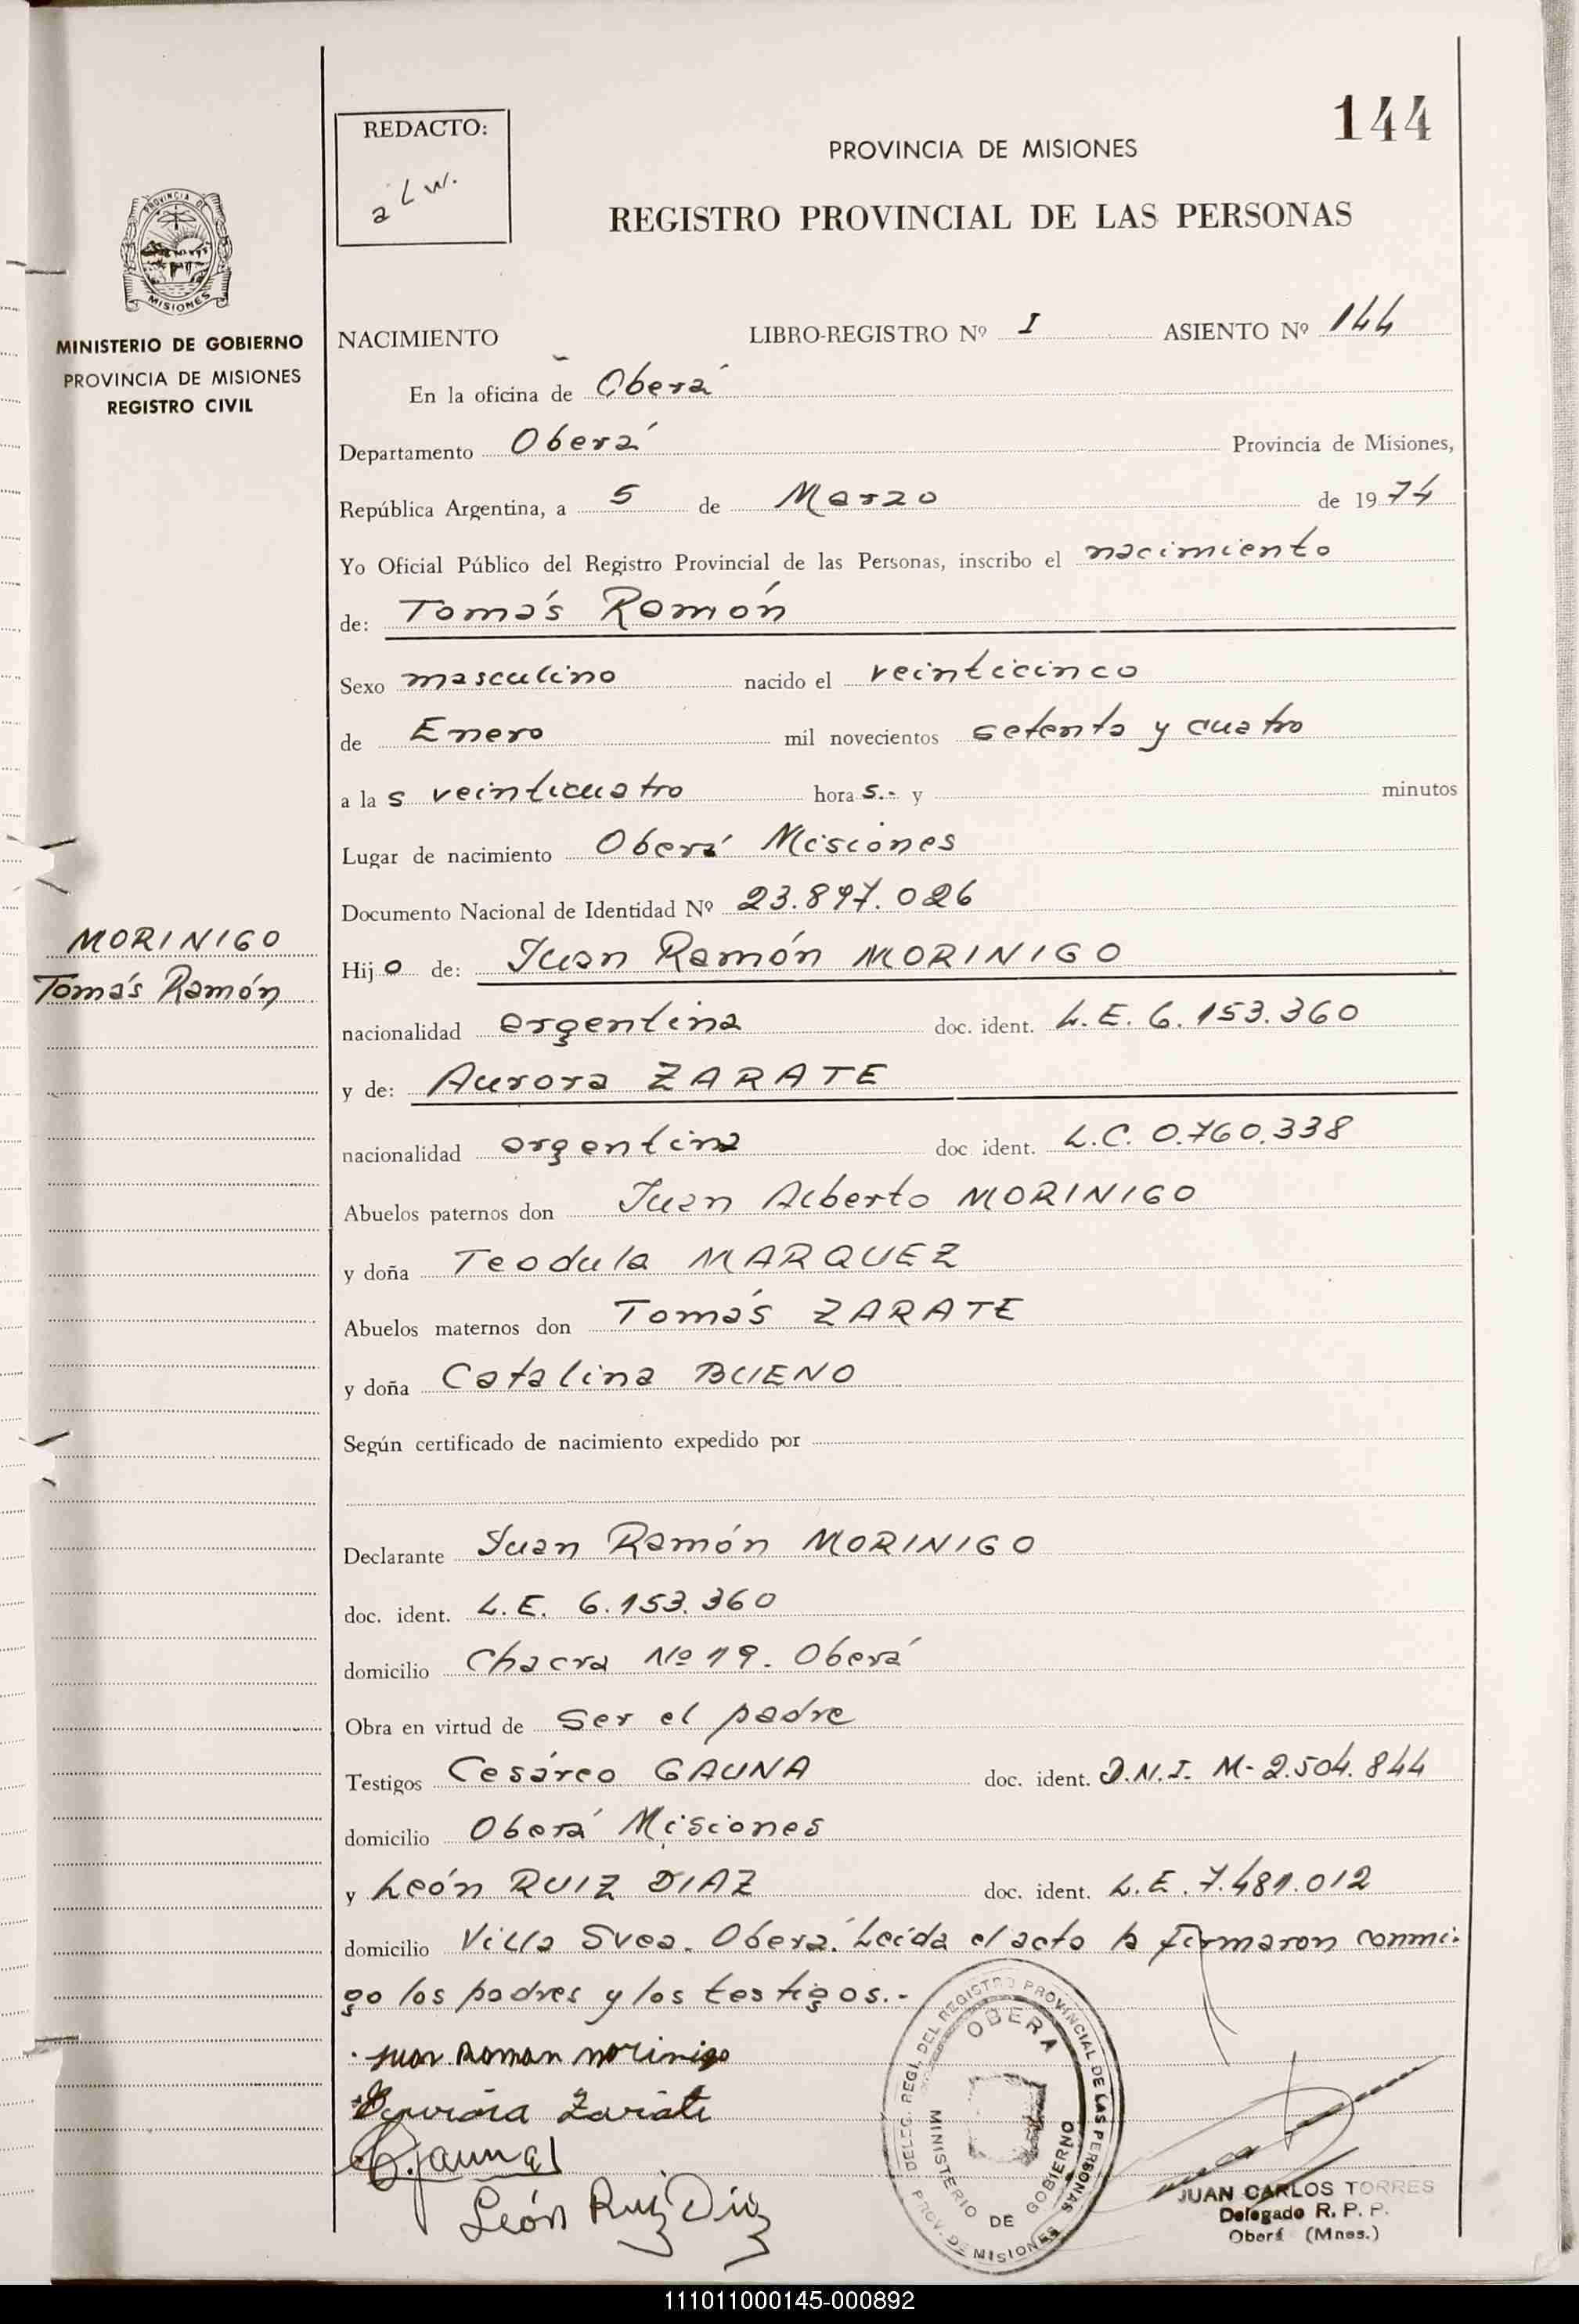 144
REDACTO:
a L w.
PROVINCIA DE MISIONES
REGISTRO PROVINCIAL DE LAS PERSONAS
PROVINCIA DE
MISIONES
MINISTERIO DE GOBIERNO
PROVINCIA DE MISIONES
REGISTRO CIVIL
NACIMIENTO LIBRO-REGISTRO Nº I ASIENTO Nº 144
En la oficina de Oberá
Departamento Oberá Provincia de Misiones,
República Argentina, a 5 de Marzo de 1974
Yo Oficial Público del Registro Provincial de las Personas, inscribo el nacimiento
de: Tomás Ramón
Sexo masculino nacido el veinticinco
de Enero mil novecientos setenta y cuatro
a las veinticuatro horas.- y minutos
Lugar de nacimiento Oberá Misiones
Documento Nacional de Identidad Nº 23.897.026
MORINIGO
Tomás Ramón
Hijo de: Juan Ramón MORINIGO
nacionalidad argentina doc. ident. L.E. 6.153.360
y de: Aurora ZARATE
nacionalidad argentina doc ident. L.C. 0.760.338
Abuelos paternos don Juan Alberto MORINIGO
y doña Teodula MARQUEZ
Abuelos maternos don Tomás ZARATE
y doña Catalina BUENO
Según certificado de nacimiento expedido por
Declarante Juan Ramón MORINIGO
doc. ident. L.E. 6.153.360
domicilio Chacra Nº 19. Oberá
Obra en virtud de Ser el padre
Testigos Cesáreo GAUNA doc. ident. D.N.I. M-2.504.844
domicilio Oberá Misiones
y León RUIZ DIAZ doc. ident. L.E. 7.481.012
domicilio Villa Svea. Oberá. Leída el acta la firmaron conmi-
go los padres y los testigos.-
Juan Roman morinigo
Aurora Zarate
C. Gauna
León Ruiz Diaz
DELEG. REGI. DEL REGISTRO PROVINCIAL DE LAS PERSONAS
OBERA
MINISTERIO DE GOBIERNO
PROV. DE MISIONES
JUAN CARLOS TORRES
Delegado R. P. P.
Oberá (Mnes.)
111011000145-000892